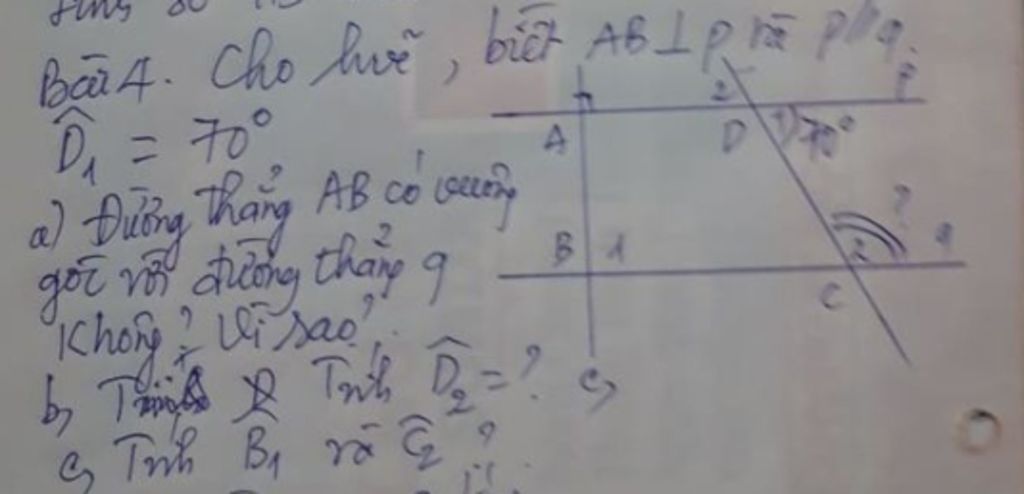 Bài 4. Cho hvẽ, biết AB⊥p và p//q.
D̂₁ = 70°
a) Đường thẳng AB có vuông
góc với đường thẳng q
không? Vì sao?
b, Tính D̂₂ = ?
c, Tính B̂₁ và Ĉ₂ ?
2 p
A D 1 70°
?
B 1 2 q
C
c,